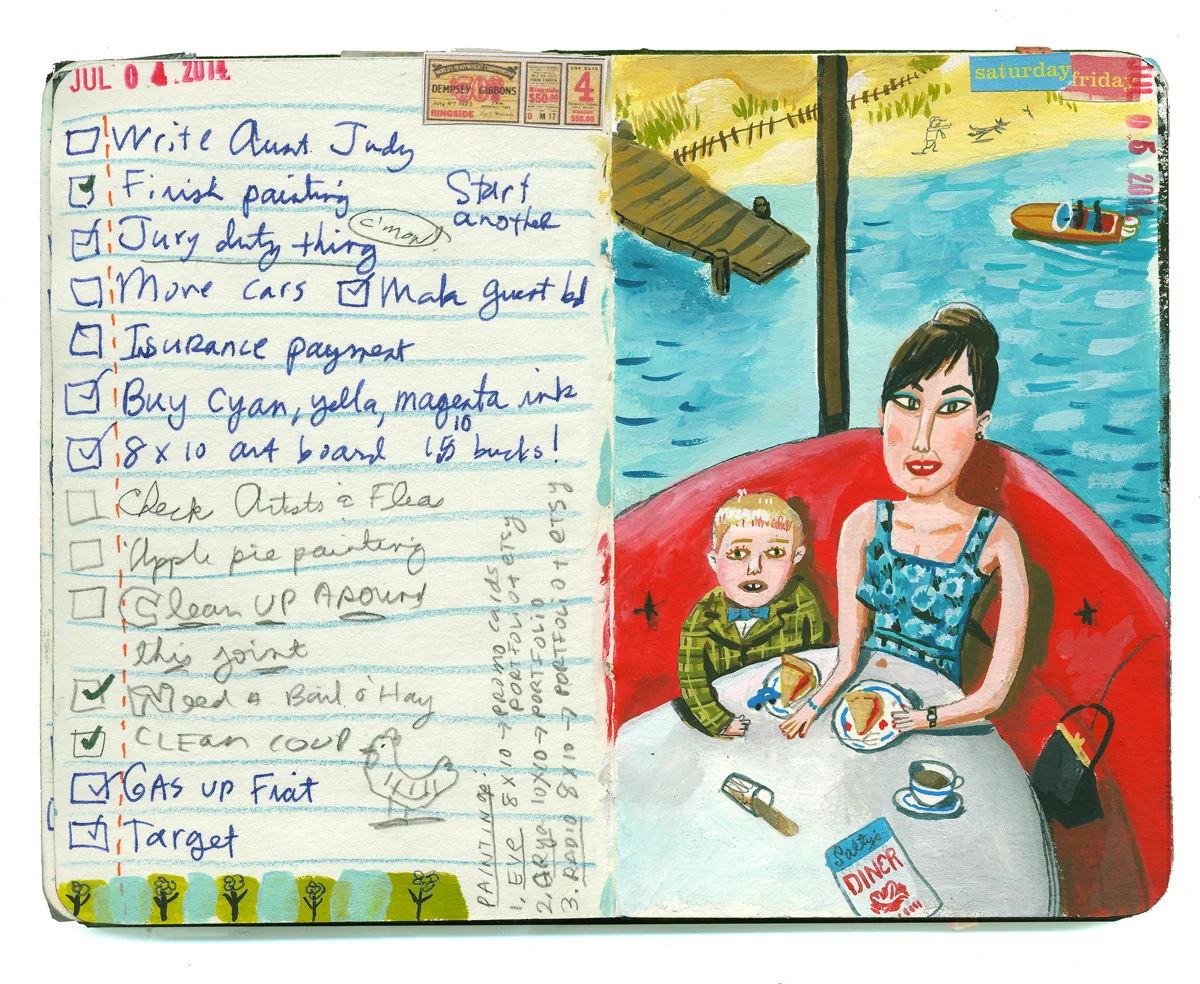 JUL 0 4 2014
DEMPSEY GIBBONS
July 4th 1923
RINGSIDE
Ringside
$50.00
D M 17
4
RINGSIDE
$50.00
Write Aunt Judy
Finish painting
Start
another
Jury duty thing
c'mon!
Move cars
Make guest bd
Insurance payment
Buy cyan, yella, magenta ink
8 x 10 art board 15 bucks!
10
Check Artists & Fleas
Apple pie painting
Clean UP Around
this joint
Need A Bail o' Hay
CLEAN COUP
GAS UP Fiat
Target
PAINTING:
1. EVE 8 X 10 → PROMO CARDS
PORTFOLIO + ETSY
2. ARYA 10X10 → PORTFOLIO
3. RADIO 8 X 10 → PORTFOLIO + ETSY
saturday
friday
JUL 0 5 2014
Salty's
DINER